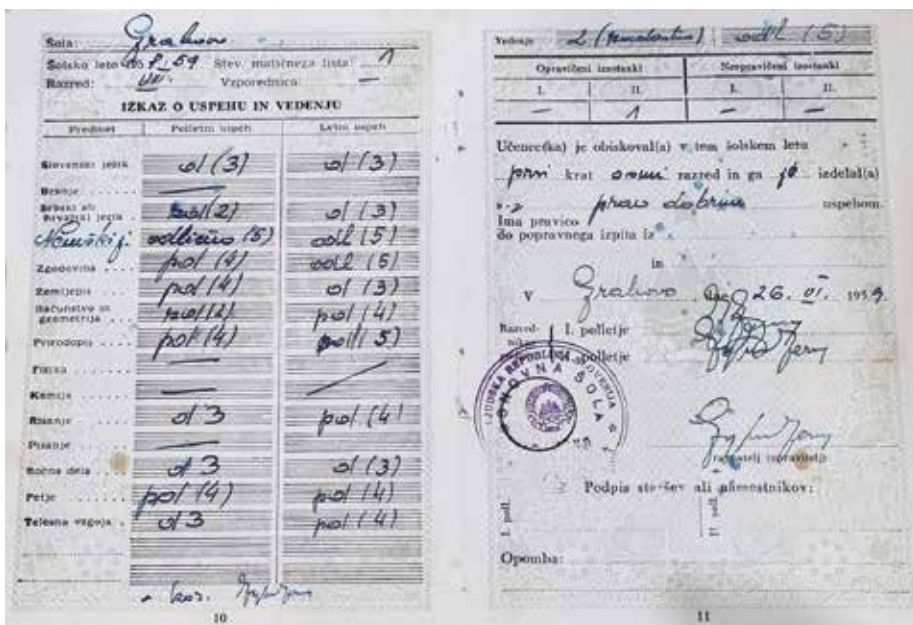 Šola: Grahovo
Šolsko leto 1958-59 Štev. matičnega lista: 1
Razred: VIII. Vzporednica: —
IZKAZ O USPEHU IN VEDENJU
Predmet Polletni uspeh Letni uspeh
Slovenski jezik d (3) d (3)
Branje —
Srbski ali hrvatski jezik (2) d (3)
Nemški j. odlično (5) odl (5)
Zgodovina pd (4) odl (5)
Zemljepis pd (4) d (3)
Računstvo in geometrija (2) pd (4)
Prirodopis pd (4) (5)
Fizika —
Kemija —
Risanje d 3 pd (4)
Pisanje —
Ročna dela d 3 d (3)
Petje pd (4) pd (4)
Telesna vzgoja d 3 pd (4)
10
Vedenje: odl (5)
Opravičeni izostanki Neopravičeni izostanki
I. II. I. II.
— 1 — —
Učenec(ka) je obiskoval(a) v tem šolskem letu
prvi krat osmi razred in ga je izdelal(a)
s prav dobrim uspehom.
Ima pravico
do popravnega izpita iz
in
V Grahovo, 26. VI. 1959.
Razrednik I. polletje
polletje
LJUDSKA REPUBLIKA SLOVENIJA
OSNOVNA ŠOLA
Podpis staršev ali namestnikov:
I. poll.
II. poll.
Opomba:
11